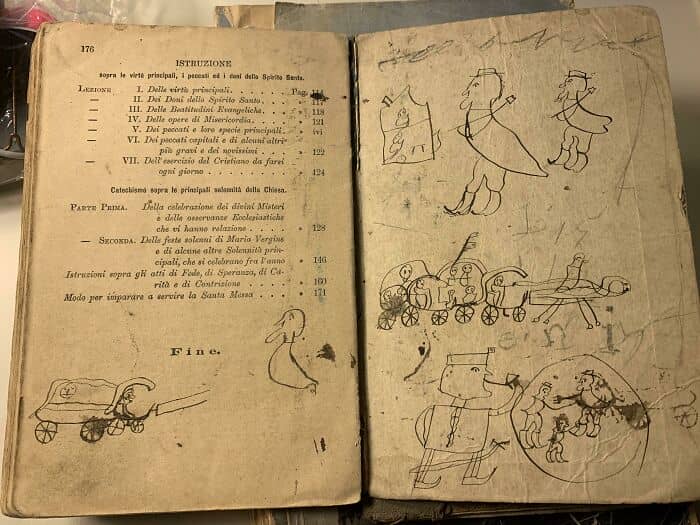 176
ISTRUZIONE
sopra le virtù principali, i peccati ed i doni dello Spirito Santo.
LEZIONE I. Delle virtù principali . . . . . . . Pag. 114
— II. Dei Doni dello Spirito Santo . . . . » 117
— III. Delle Beatitudini Evangeliche . . . . » 118
— IV. Delle opere di Misericordia . . . . . » 121
— V. Dei peccati e loro specie principali . . » ivi
— VI. Dei peccati capitali e di alcuni altri
più gravi e dei novissimi . . . . . » 122
— VII. Dell'esercizio del Cristiano da farsi
ogni giorno . . . . . . . . . » 124
Catechismo sopra le principali solennità della Chiesa.
PARTE PRIMA. Della celebrazione dei divini Misteri
e delle osservanze Ecclesiastiche
che vi hanno relazione . . . . . » 128
— SECONDA. Delle feste solenni di Maria Vergine
e di alcune altre Solennità prin-
cipali, che si celebrano fra l'anno » 146
Istruzioni sopra gli atti di Fede, di Speranza, di Ca-
rità e di Contrizione . . . . . . . . » 160
Modo per imparare a servire la Santa Messa . . . . » 171
Fine.